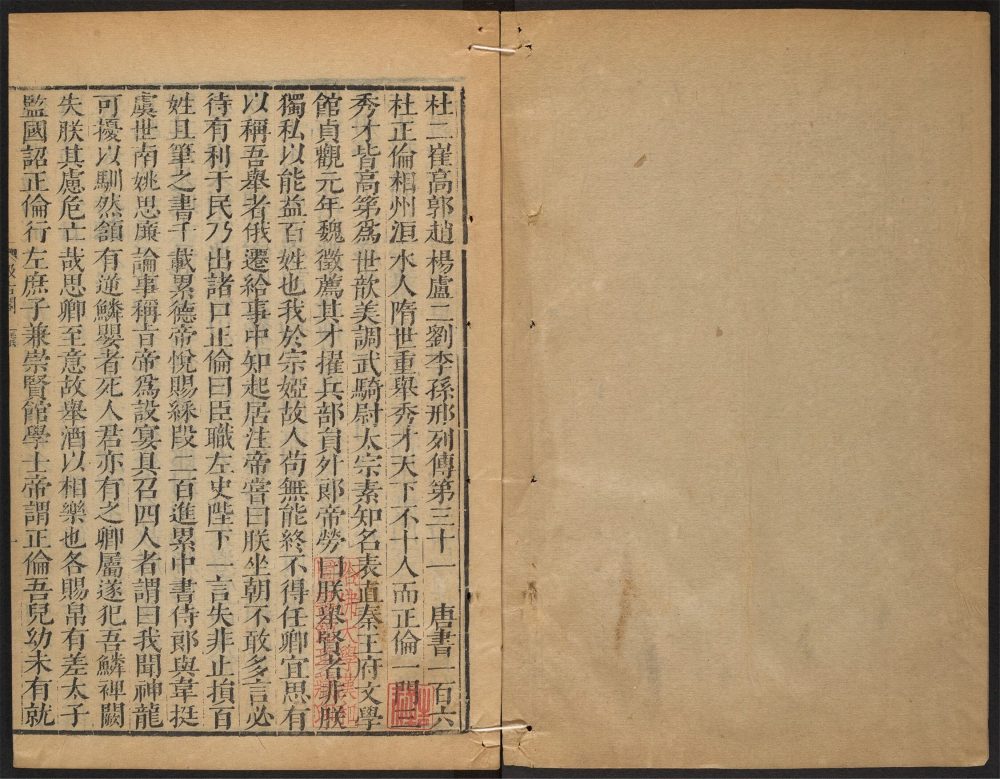 杜二崔高郭趙楊盧二劉李孫邢列傳第三十一　唐書一百六
杜正倫相州洹水人隋世重舉秀才天下不十人而正倫一門三
秀才皆高第爲世歆美調武騎尉太宗素知名表直秦王府文學
館貞觀元年魏徵薦其才擢兵部員外郎帝勞曰朕舉賢者非朕
獨私以能益百姓也我於宗婭故人苟無能終不得任卿宜思有
以稱吾舉者俄遷給事中知起居注帝嘗曰朕坐朝不敢多言必
待有利于民乃出諸口正倫曰臣職左史陛下一言失非止損百
姓且筆之書千載累德帝悅賜綵段二百進累中書侍郎與韋挺
虞世南姚思廉論事稱旨帝爲設宴具召四人者謂曰我聞神龍
可擾以馴然頷有逆鱗嬰者死人君亦有之卿屬遂犯吾鱗裨闕
失朕其慮危亡哉思卿至意故舉酒以相樂也各賜帛有差太子
監國詔正倫行左庶子兼崇賢館學士帝謂正倫吾兒幼未有就